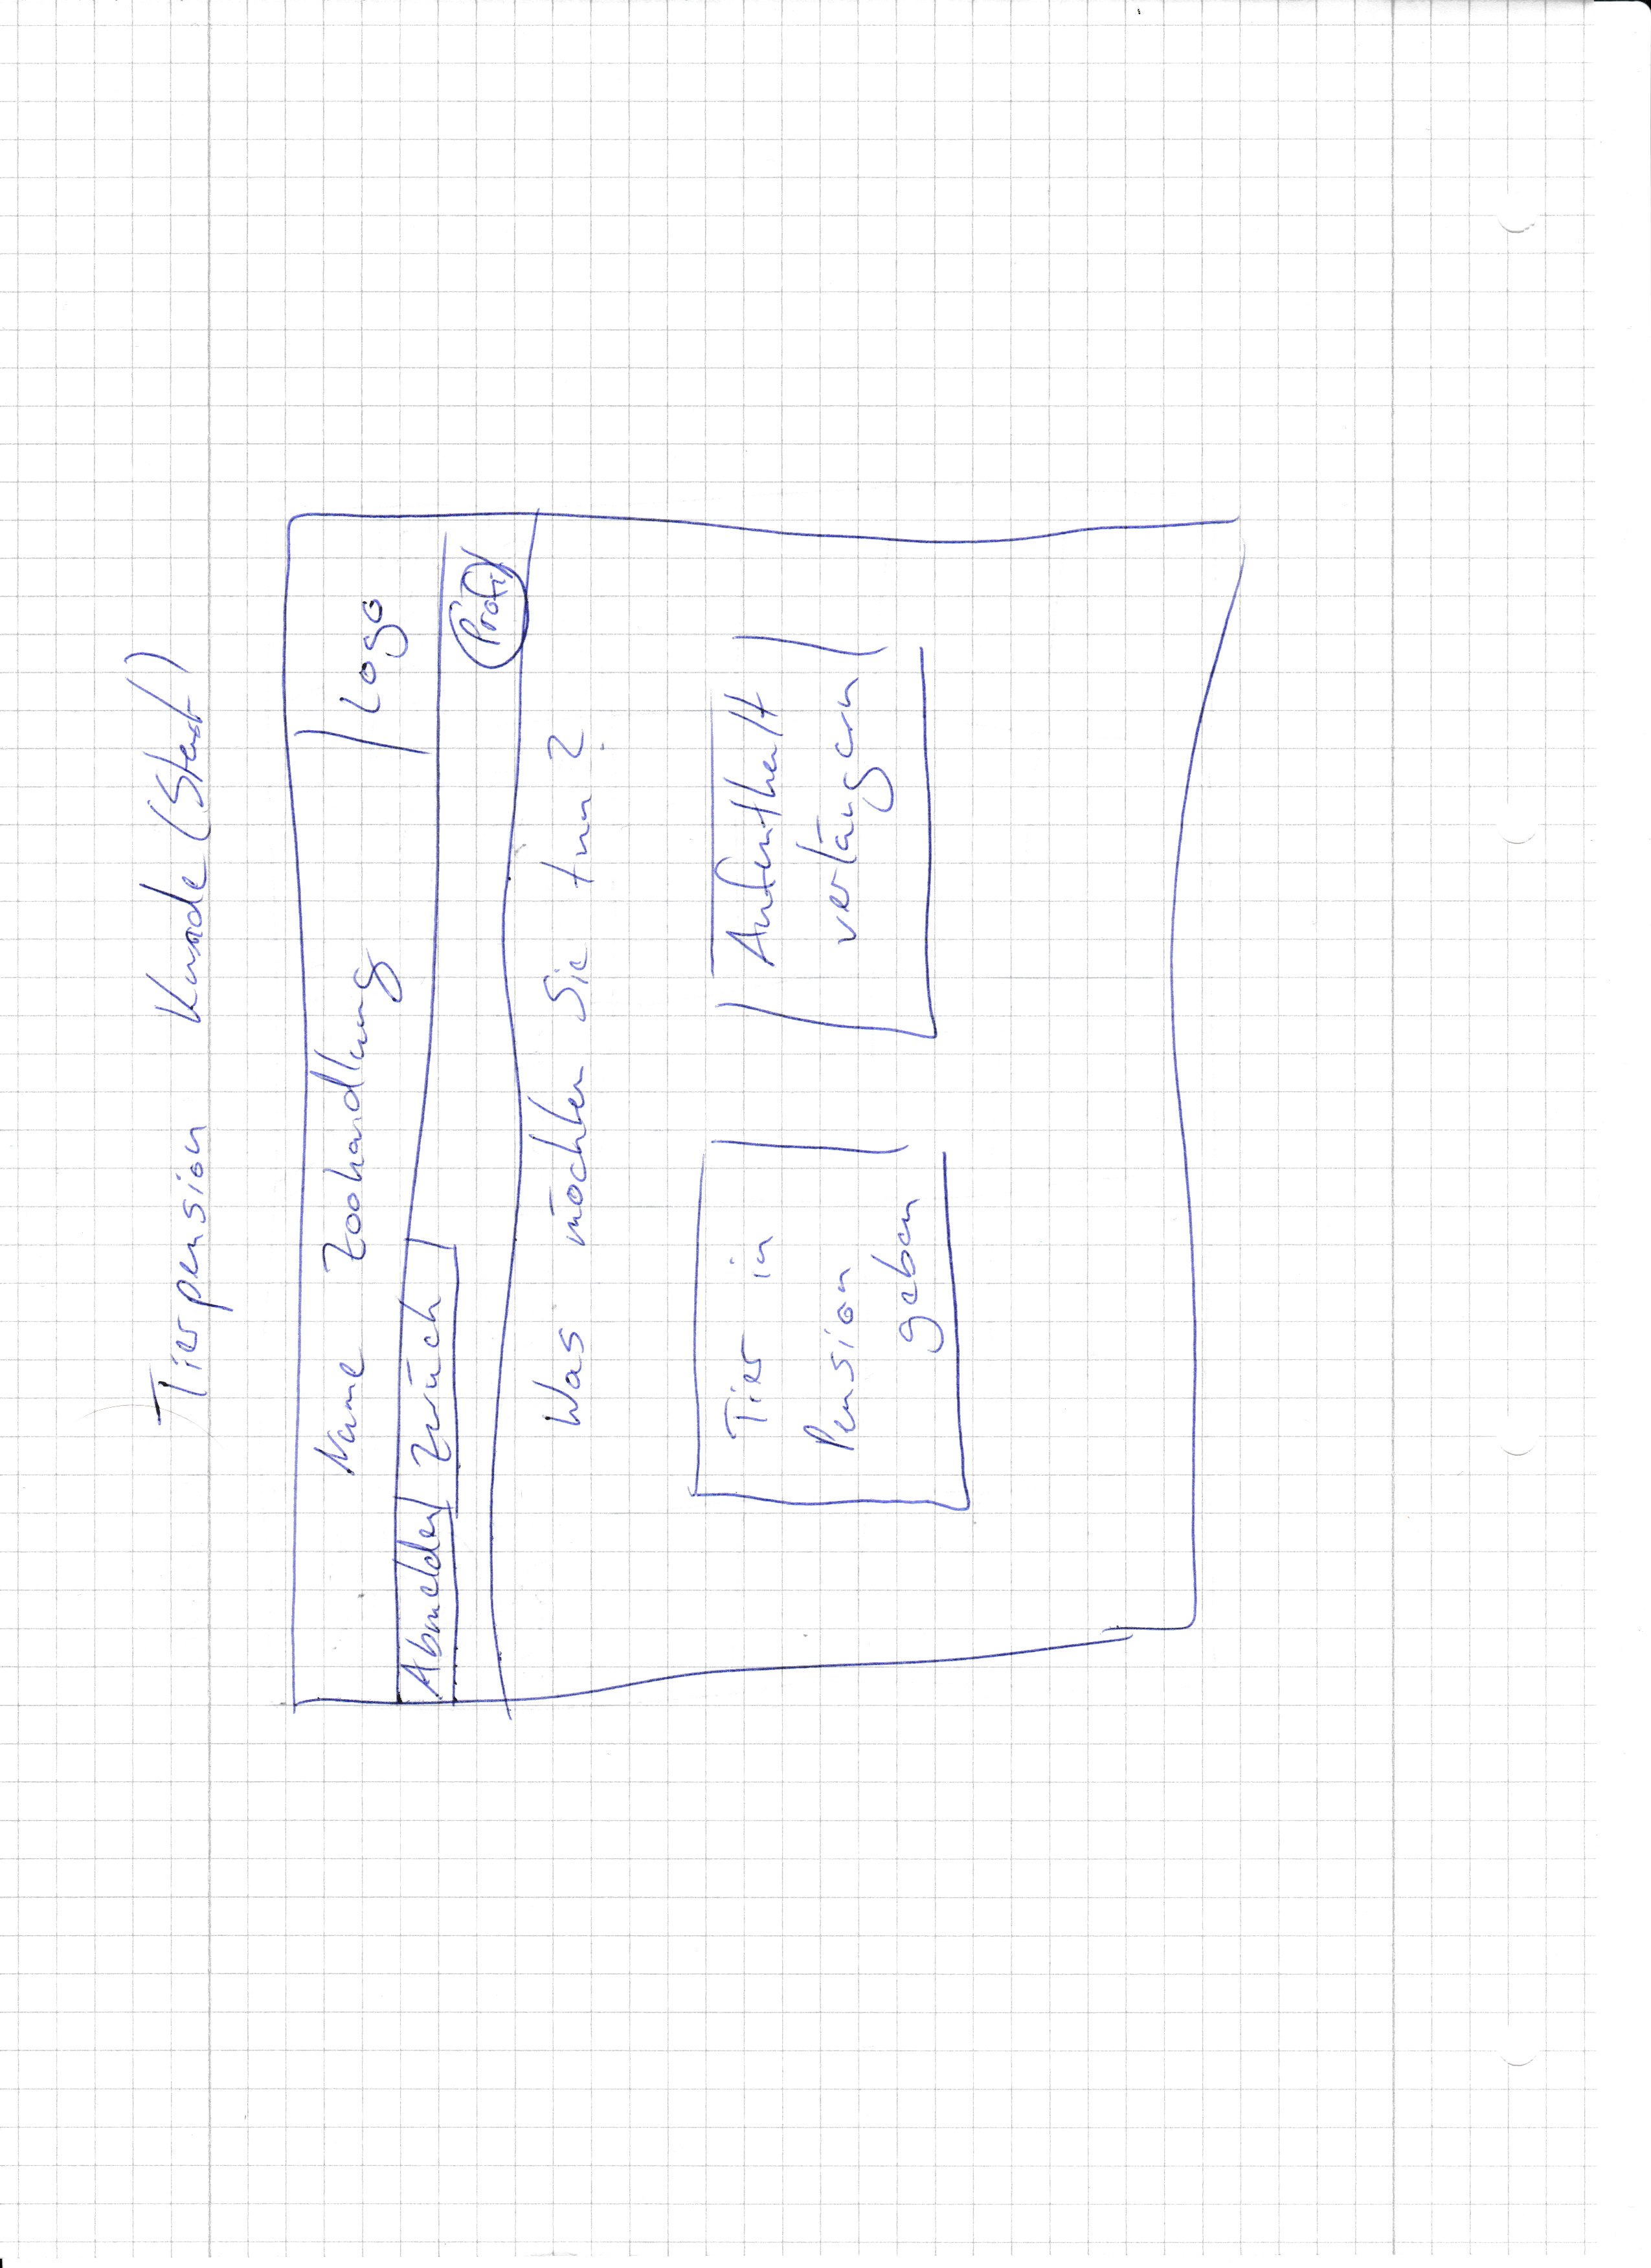 Tierpension Kunde (Start)
Name Zoohandlung
Logo
Abmelden
Zurück
Profil
Was möchten Sie tun?
Tier in
Pension
geben
Aufenthalt
verlängern